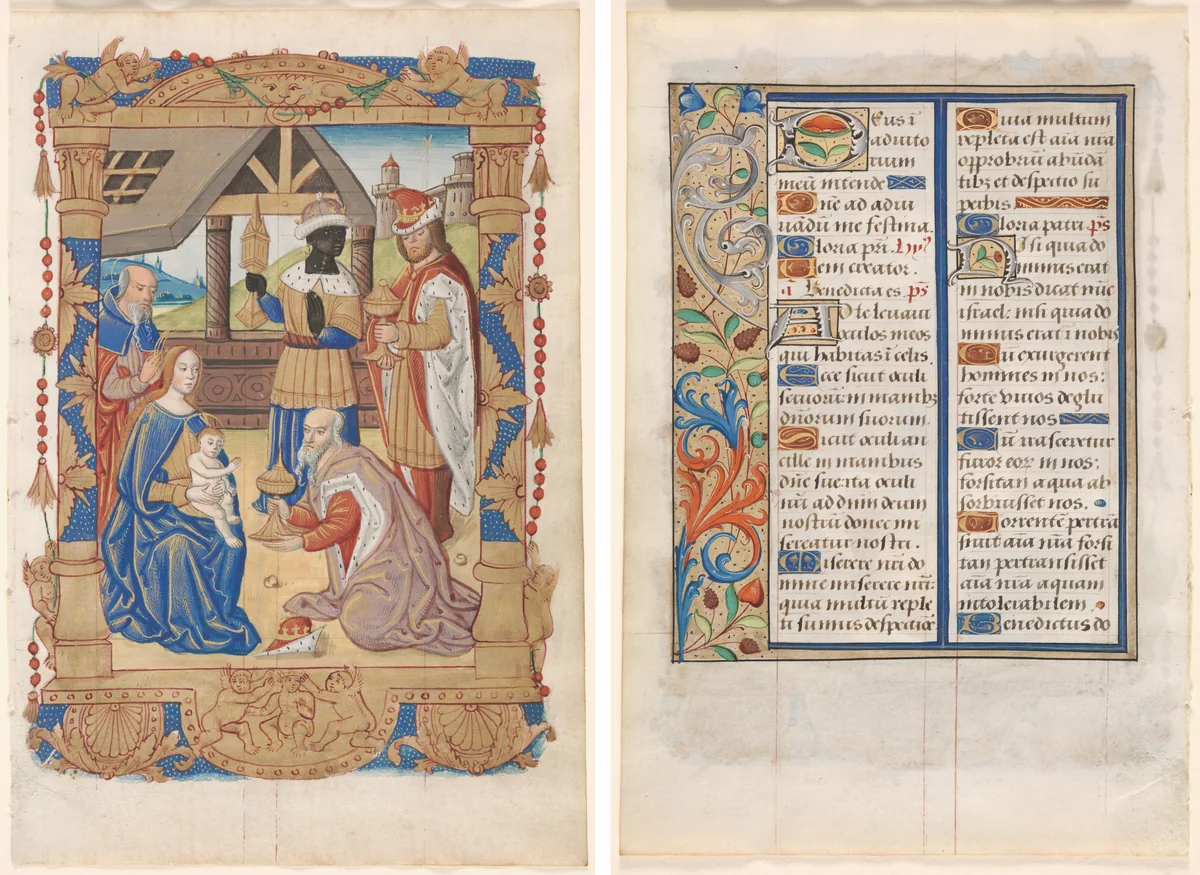 Deus ī
adiuto
rium
meū intende
Dne ad adiu
uadū me festina.
Gloria pr̄i.
em creator.
Benedicta es. ps
Ad te leuaui
oculos meos
qui habitas ī celis.
Ecce sicut oculi
seruorū: in manibz
dn̄orum suorum.
Sicut oculi an
cille in manibus
dn̄e sue: ita oculi
nr̄i ad dn̄m deum
nostrū donec mi
sereatur nostri.
Miserere nr̄i do
mine miserere nr̄i:
quia multū reple
ti sumus despectiōe
Quia multum
repleta est aīa nr̄a
opprobriū abūdā
tibz et despectio su
perbis
Gloria patri. ps
Nisi quia do
minus erat
in nobis dicat nūc
israel: nisi quia do
minus erat ī nobis
Cū exurgerent
homines in nos:
forte viuos deglu
tissent nos
Cū irasceretur
furor eorꝝ in nos:
forsitan aqua ab
sorbuisset nos.
Torrentē pertrā
siuit aīa nr̄a forsi
tan pertransisset
aīa nr̄a aquam
intolerabilem.
Benedictus do